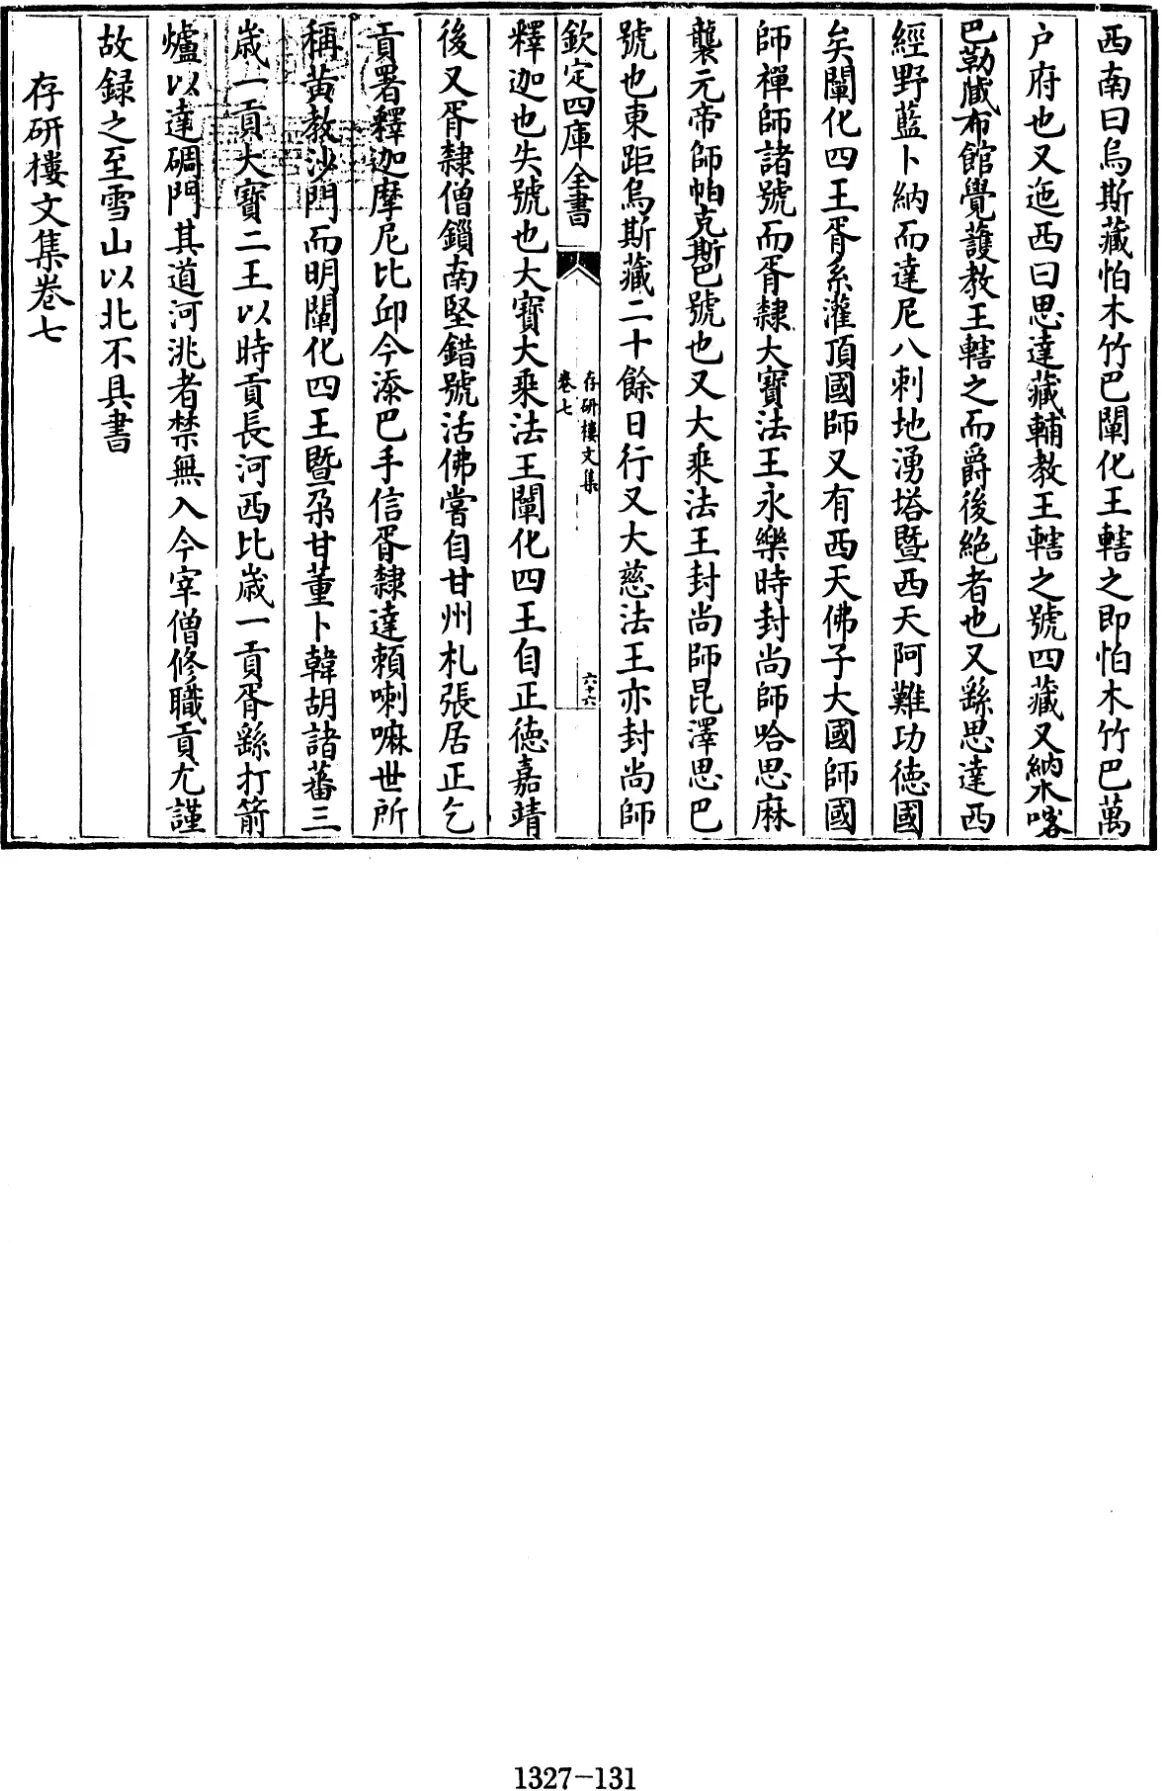 西南曰烏斯藏怕木竹巴闡化王轄之即怕木竹巴萬
户府也又迤西曰思達藏輔教王轄之號四藏又納木喀
巴勒藏布館覺護教王轄之而爵後絶者也又繇思達西
經野藍卜納而達尼八刺地湧塔暨西天阿難功德國
矣闡化四王胥系灌頂國師又有西天佛子大國師國
師禪師諸號而胥隸大寶法王永樂時封尚師哈思麻
襲元帝師帕克斯巴號也又大乘法王封尚師昆澤思巴
號也東距烏斯藏二十餘日行又大慈法王亦封尚師
欽定四庫全書
存研樓文集
卷七
六十六
釋迦也失號也大寶大乘法王闡化四王自正德嘉靖
後又胥隸僧鎖南堅錯號活佛嘗自甘州札張居正乞
貢署釋迦摩尼比邱今漆巴手信胥隸達頼喇嘛世所
稱黃教沙門而明闡化四王暨朶甘董卜韓胡諸蕃三
歳一貢大寶二王以時貢長河西比歳一貢胥繇打箭
爐以達碉門其道河洮者禁無入今宰僧修職貢尤謹
故録之至雪山以北不具書
存研樓文集卷七
1327-131